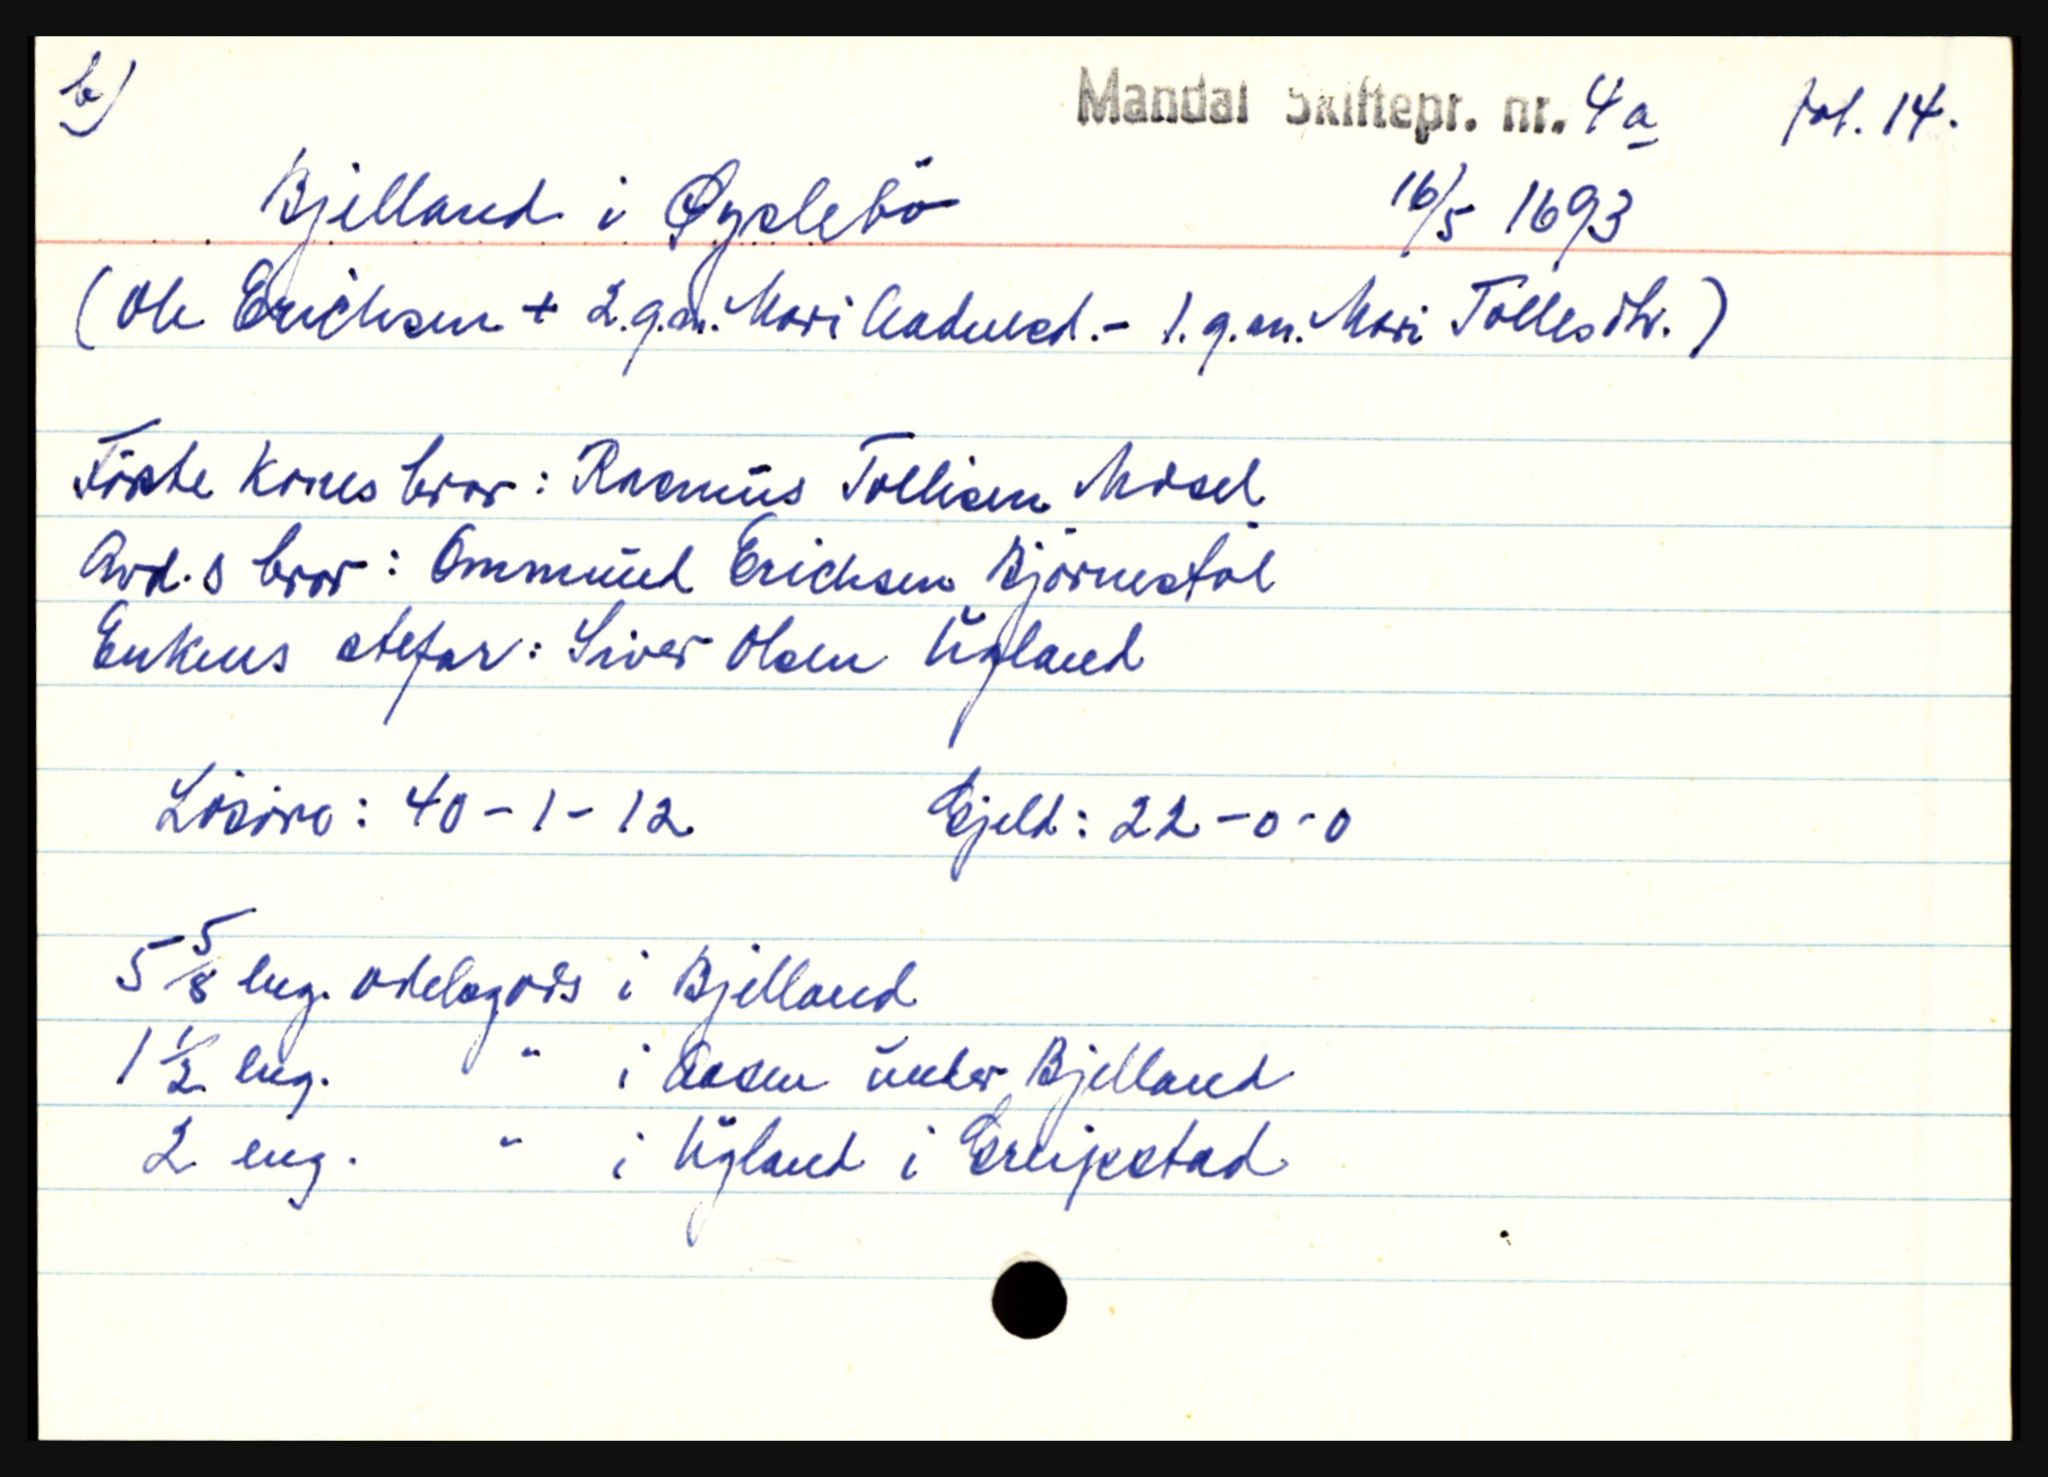 b)
Mandal Skiftepr. nr. 4a fol. 14.
Bjelland i Øyslebö 16/5 1693
(Ole Erichsen + 2.g.m. Mari Aadnesd. - 1.g.m. Mari Tollesdtr.)
Förste kones bror: Rasmus Tollisen Mösel
Avd.s bror: Ommund Erichsen Björnestöl
Enkens stefar: Siver Olsen Ugland
Lösöre: 40-1-12 Gjeld: 22-0-0
5 5/8 eng. odelsgods i Bjelland
1 1/2 eng. " i Aasen under Bjelland
2 eng. " i Ugland i Greipstad